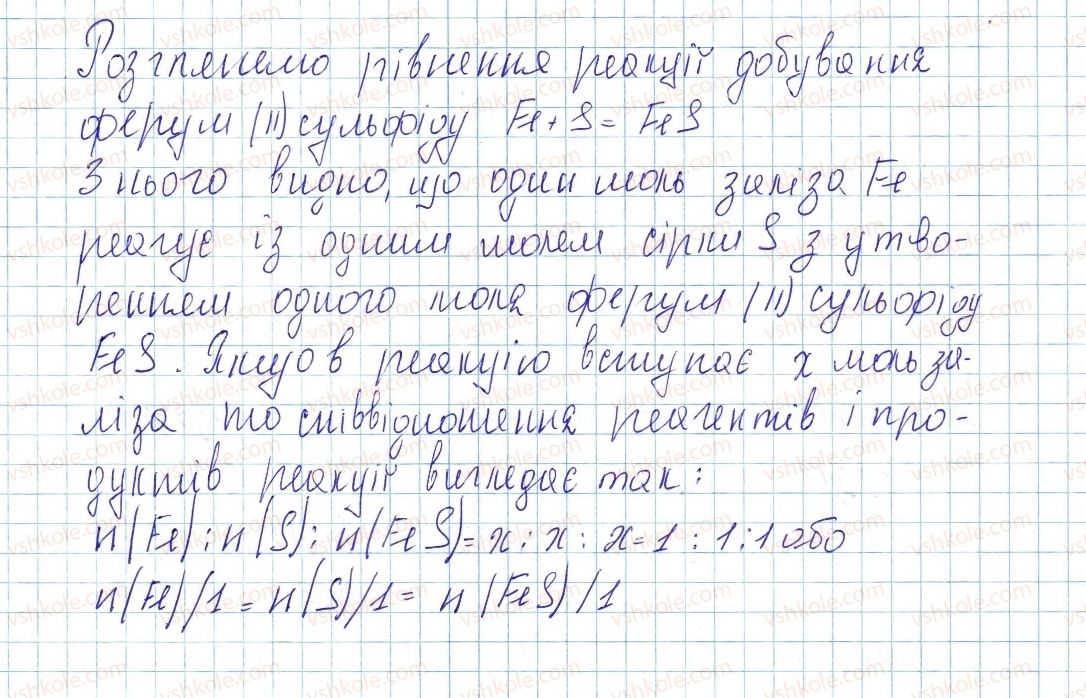 Розглянемо рівнення реакції добування
ферум (II) сульфіду Fe + S = FeS
З нього видно, що один моль заліза Fe
реагує із одним молем сірки S з утво-
ренням одного моля ферум (II) сульфіду
FeS. Якщо в реакцію вступає x моль за-
ліза то співвідношення реагентів і про-
дуктів реакції вигледає так:
n(Fe) : n(S) : n(FeS) = x : x : x = 1 : 1 : 1 або
n(Fe)/1 = n(S)/1 = n(FeS)/1